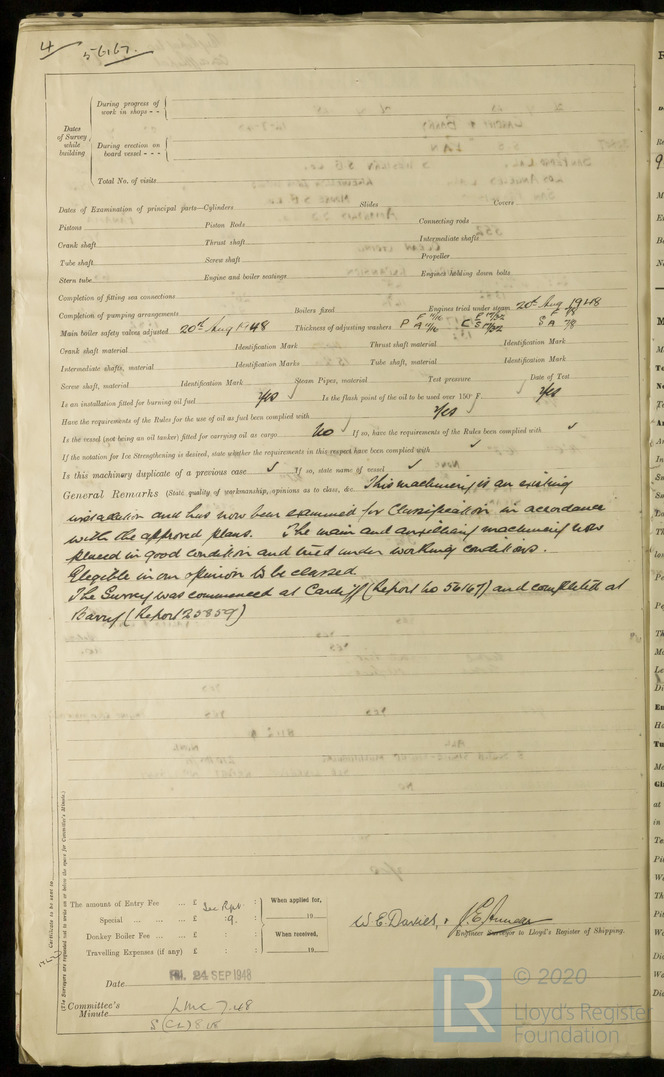 4
56167.
During progress of work in shops - -
Dates of Survey while building
During erection on board vessel - - -
Total No. of visits
Dates of Examination of principal parts—Cylinders Slides Covers
Pistons Piston Rods Connecting rods
Crank shaft Thrust shaft Intermediate shafts
Tube shaft Screw shaft Propeller
Stern tube Engine and boiler seatings Engines holding down bolts
Completion of fitting sea connections
Completion of pumping arrangements Boilers fixed Engines tried under steam 20th Aug 1948
Main boiler safety valves adjusted 20th Aug 1948 Thickness of adjusting washers P F 11/16 A 11/16 C F 17/32 S 17/32 S F 7/8 A 7/8
Crank shaft material Identification Mark Thrust shaft material Identification Mark
Intermediate shafts, material Identification Marks Tube shaft, material Identification Mark
Screw shaft, material Identification Mark Steam Pipes, material Test pressure Date of Test
Is an installation fitted for burning oil fuel Yes Is the flash point of the oil to be used over 150° F. Yes
Have the requirements of the Rules for the use of oil as fuel been complied with Yes
Is the vessel (not being an oil tanker) fitted for carrying oil as cargo No If so, have the requirements of the Rules been complied with ✓
If the notation for Ice Strengthening is desired, state whether the requirements in this respect have been complied with ✓
Is this machinery duplicate of a previous case ✓ If so, state name of vessel ✓
General Remarks (State quality of workmanship, opinions as to class, &c. This machinery is an existing
installation and has now been examined for Classification in accordance
with the approved plans. The main and auxiliary machinery now
placed in good condition and tried under working conditions.
Elegible in our opinion to be classed
The Survey was commenced at Cardiff (Report No 56167) and completed at
Barry (Report 25859)
Certificate to be sent to
(The Surveyors are requested not to write on or below the space for Committee's Minute.)
The amount of Entry Fee ... £ See Rpt : When applied for,
Special ... ... £ 9. : 19
Donkey Boiler Fee ... ... £ : : When received,
Travelling Expenses (if any) £ : : 19
W.E. Davies, &
Engineer Surveyor to Lloyd's Register of Shipping.
Date FRI. 24 SEP 1948
Committee's Minute LMC 7.48
S(CL) 8.48
LR
© 2020
Lloyd's Register
Foundation